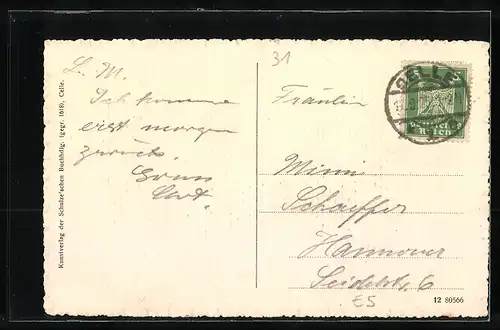 31
L. M.
Ich komme
erst morgen
zurück.
Gruss
Fräulein
Mimi
Schaeffer
Hannover
Seidelstr. 6
£5
CELLE
5 5
Deutsches
Reich
Kunstverlag der Schulze'schen Buchhdlg. (gegr. 1618), Celle.
12 80566